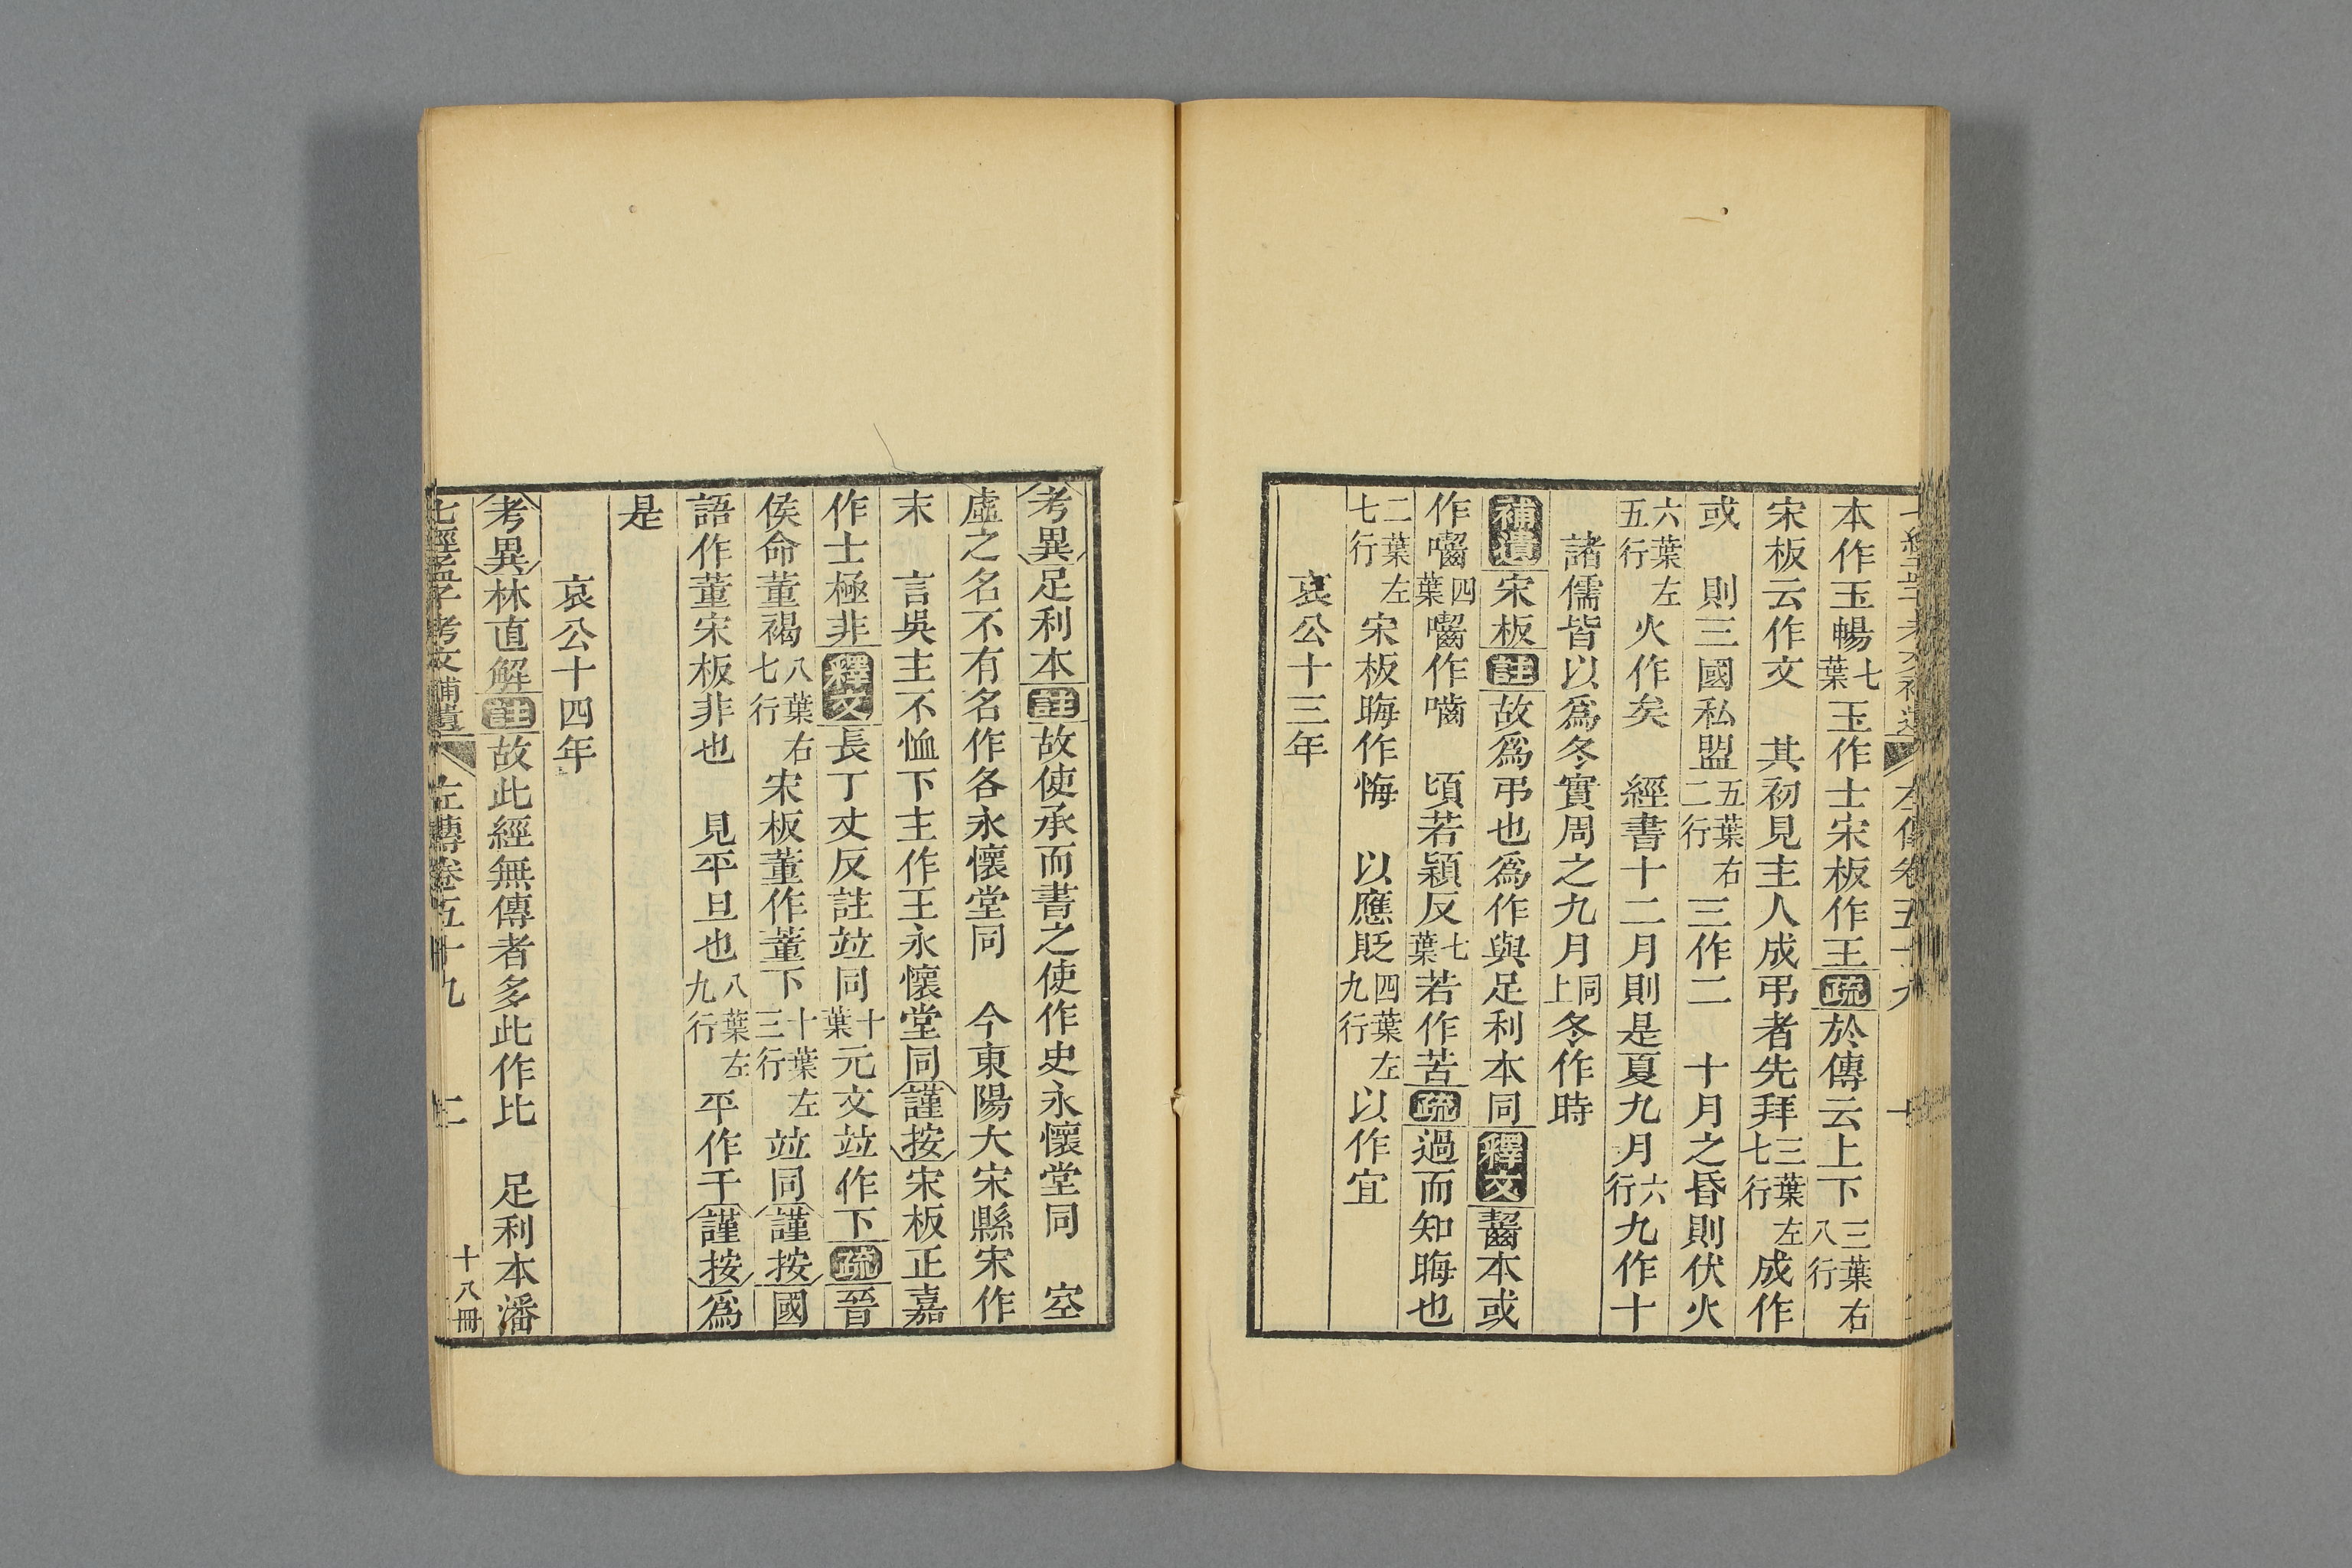 本作玉暢七葉玉作士宋板作王疏於傳云上下三葉右八行
宋板云作文　其初見主人成弔者先拜三葉左七行成作
或　則三國私盟五葉右二行三作二　十月之昏則伏火
六葉左五行火作矣　經書十二月則是夏九月六行九作十
諸儒皆以爲冬實周之九月同上冬作時
補遺宋板註故爲弔也爲作與足利本同釋文齧本或
作囓四葉囓作嚙　頃若穎反七葉若作苦疏過而知晦也
二葉左七行宋板晦作悔　以應貶四葉左九行以作宜
哀公十三年
考異足利本註故使承而書之使作史永懷堂同　空
虛之名不有名作各永懷堂同　今東陽大宋縣宋作
末　言吳主不恤下主作王永懷堂同謹按宋板正嘉
作士極非釋文長丁丈反註竝同十葉元文竝作下疏晉
侯命董褐八葉右七行宋板董作蕫下十葉左三行竝同謹按國
語作董宋板非也　見平旦也八葉左九行平作于謹按爲
是
哀公十四年
考異林直解註故此經無傳者多此作比　足利本潘
七經孟子考文補遺　左傳卷五十九　二　十八冊